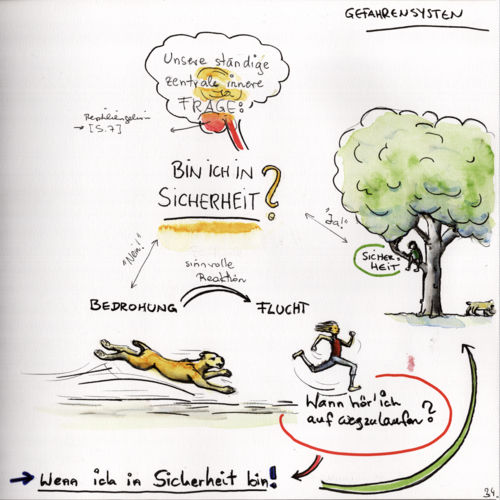 GEFAHRENSYSTEM
Unsere ständige
zentrale innere
FRAGE:
[S.7]
BIN ICH IN
SICHERHEIT?
"Ja!"
"Nein!"
SICHER-
HEIT
sinnvolle
Reaktion
BEDROHUNG
FLUCHT
Wann hör' ich
auf wegzulaufen?
Wenn ich in Sicherheit bin!
34